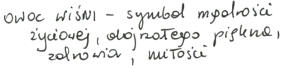 owoc wiśni - symbol mądrości
życiowej, dojrzałego piękna,
zdrowia, miłości